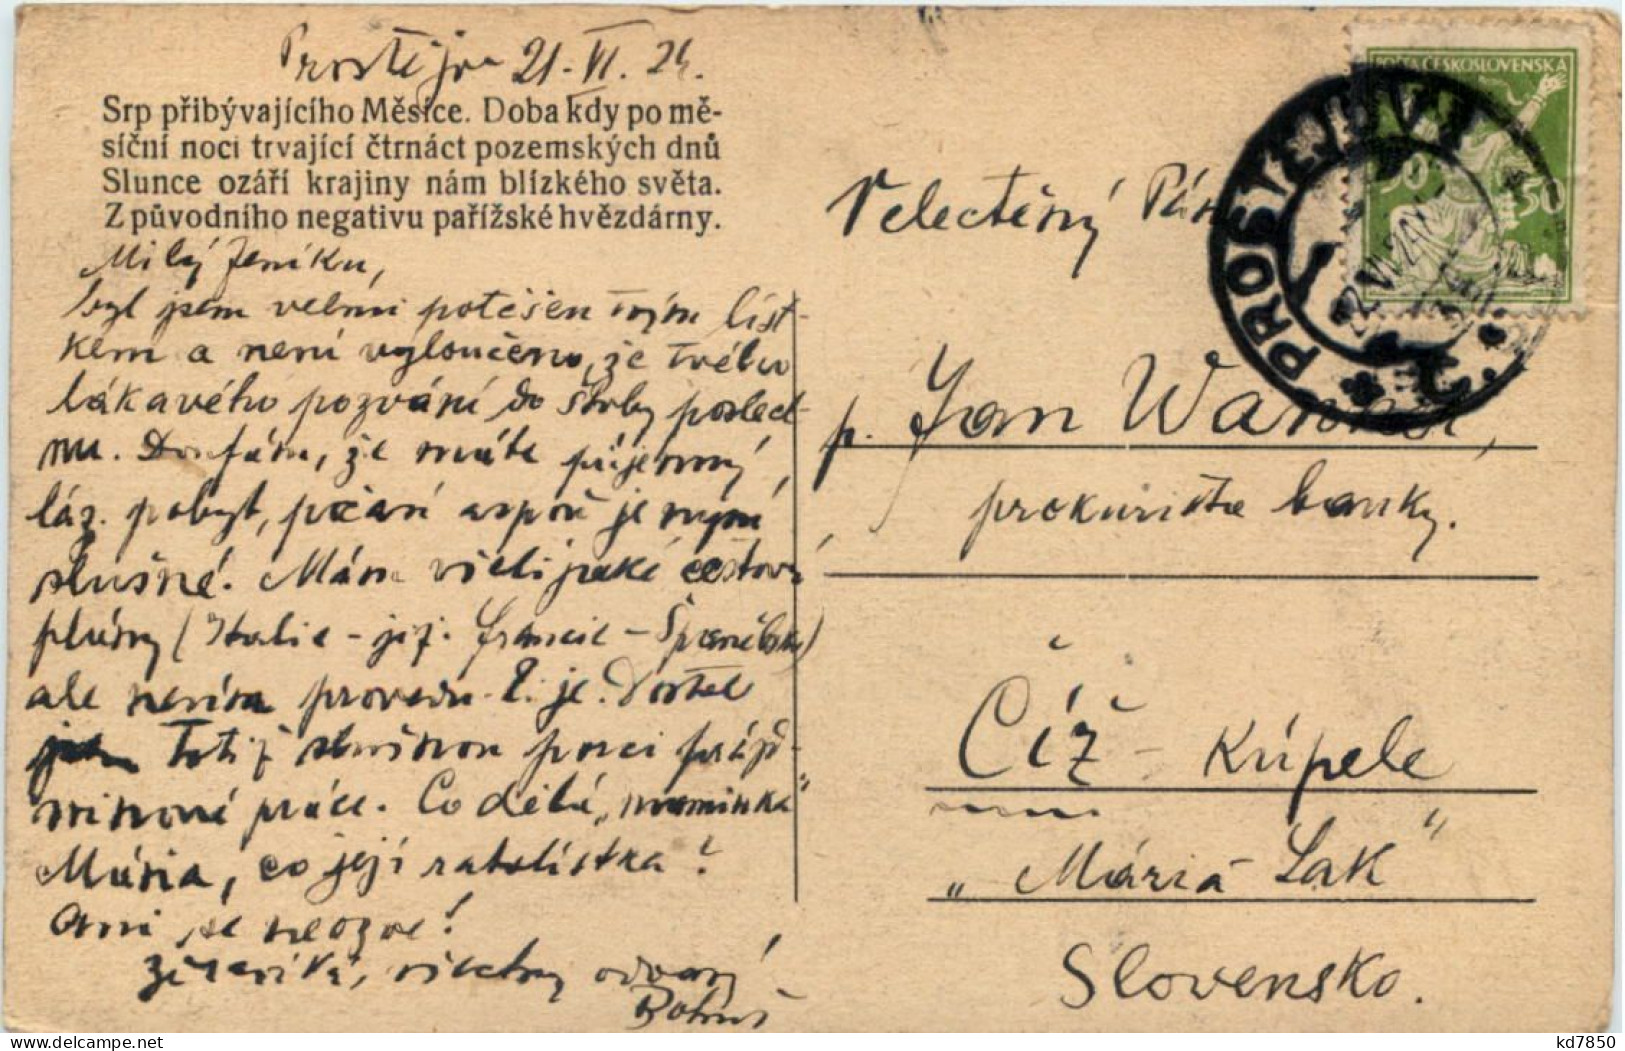 Prostějov 21. VI. 24.
Srp přibývajícího Měsíce. Doba kdy po mě-
síční noci trvající čtrnáct pozemských dnů
Slunce ozáří krajiny nám blízkého světa.
Z původního negativu pařížské hvězdárny.
Milý Jeníku,
byl jsem velmi potěšen tvým líst-
kem a není vyloučeno, že tvého
lákavého pozvání do Štrby poslech-
nu. Doufám, že máte příjemný
láz. pobyt, počasí aspoň je nyní
slušné. Mám všelijaké cestovní
plány (Italie - již. Francie - Španělsko)
ale nevím provedu-li je. Dostal
jsem totiž slušnou porci prázd-
ninové práce. Co dělá „maminka"
Mánia, co její ratolístka?
Ani se neozve!
všechny
Bohuš
POŠTA ČESKOSLOVENSKÁ
50 50
PROSTĚJOV 1
22.VI.24
Velectěný Pán
p. Jan
prokurista banky.
Číž - Kúpele
„Mária Lak"
Slovensko.
kd7850